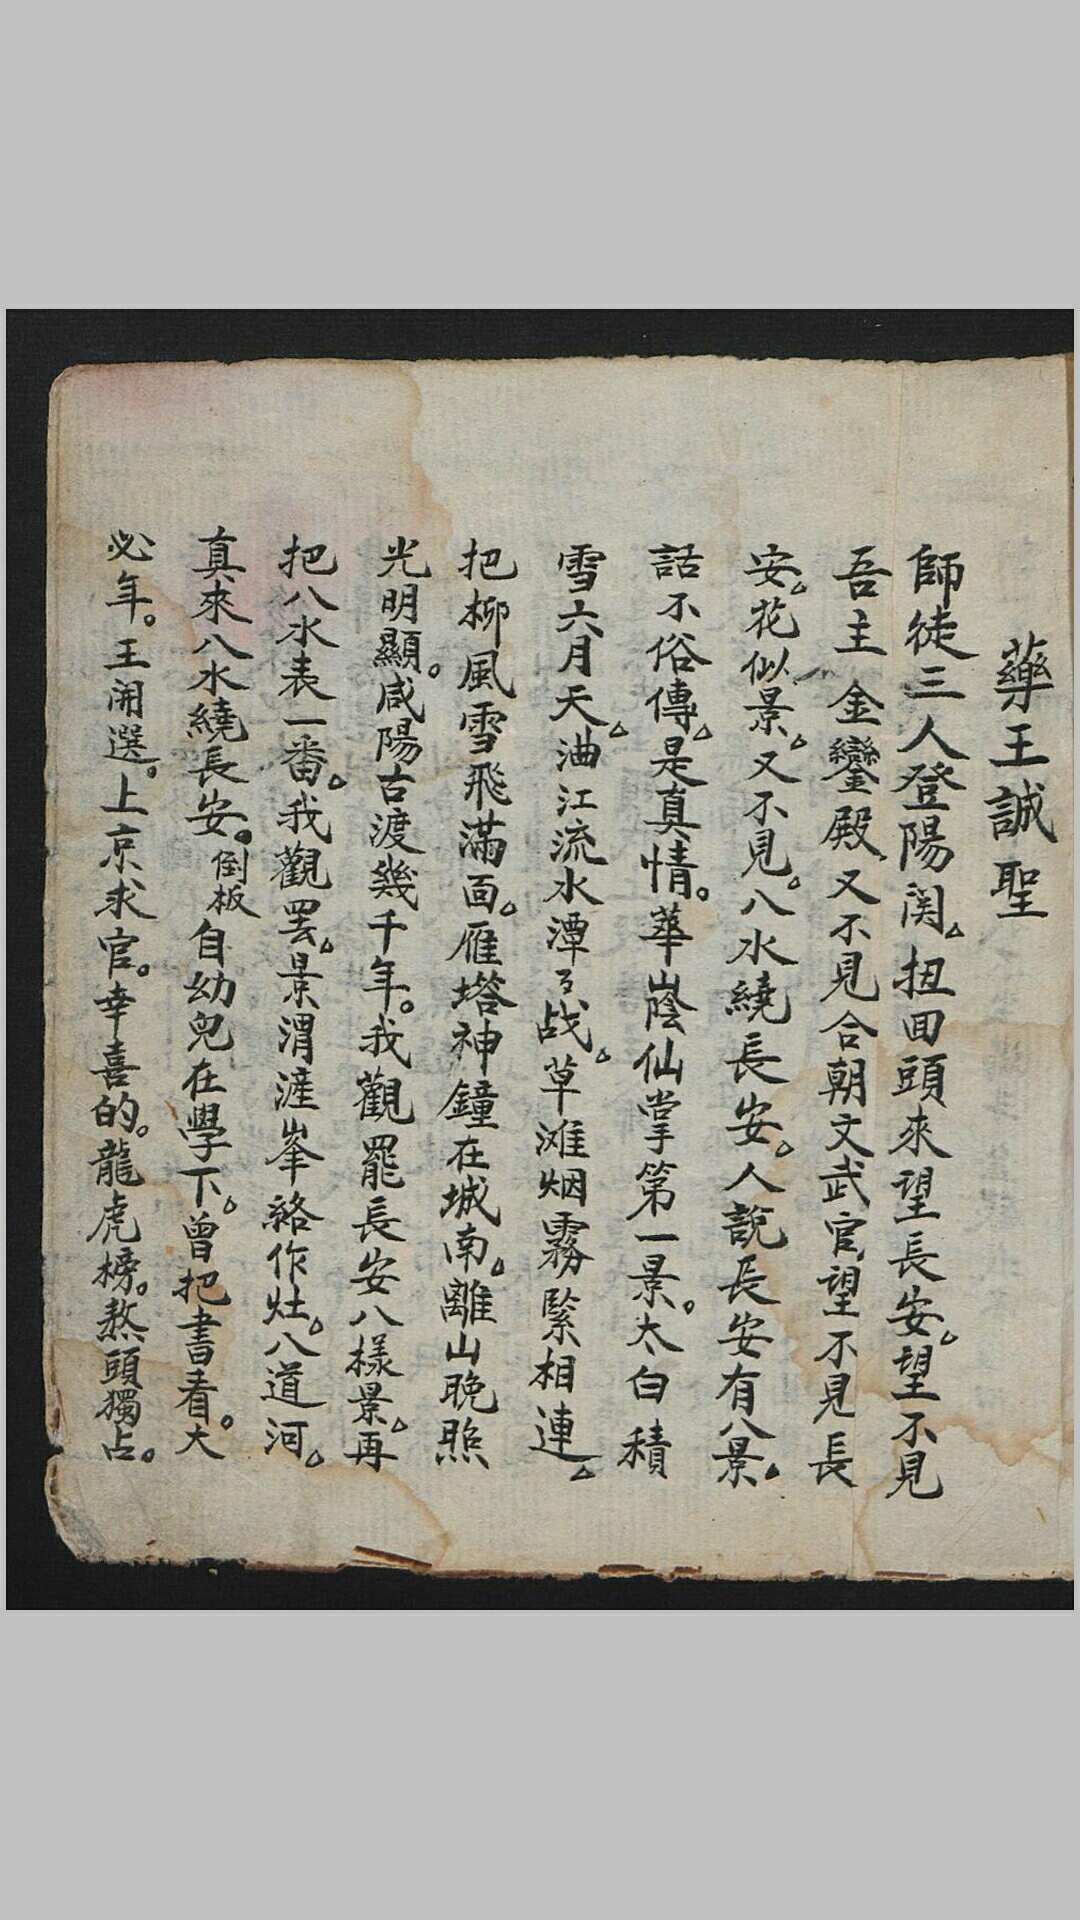 藥王誠聖
師徒三人登陽関。扭回頭來望長安。望不見
吾主金鑾殿、又不見合朝文武官、望不見長
安。花似景。又不見。八水繞長安。人說長安有八景。
話不俗傳。是真情。華蔭仙掌第一景。太白積
雪六月天。㳌江流水潭々战。草滩烟霧緊相連。
把柳風雪飛滿面。雁塔神鐘在城南。離山晚照
光明顯。咸陽古渡幾千年。我觀罷長安八樣景。再
把八水表一番。我觀罢。景渭滻峯絡作灶。八道河。
真來八水繞長安。倒板自幼兒在學下。曾把書看。大
必年。王開選。上京求官。幸喜的。龍虎榜。熬頭獨占。